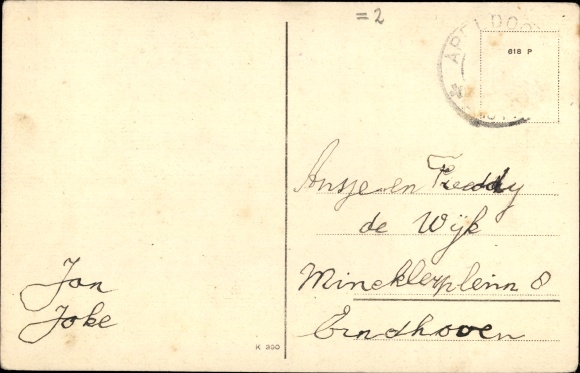 = 2
APELDOO
618 P
Ansje en Freddy
de Wijk
Mincklerplein 8
Eindhoven
Jan
Joke
K 300